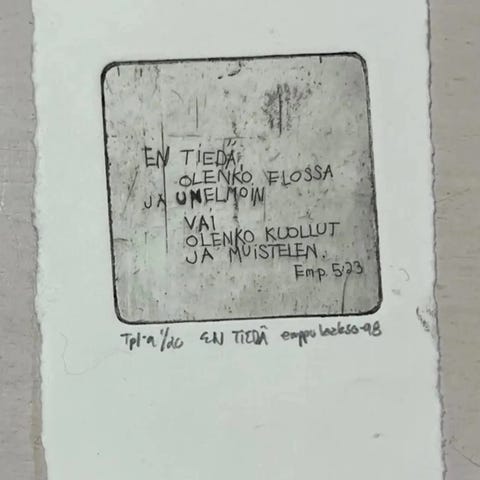 EN TIEDÄ,
OLENKO ELOSSA
JA UNELMOIN
VAI
OLENKO KUOLLUT
JA MUISTELEN.
Emp. 5:23
Tpl-a 1/20 EN TIEDÄ eappu laakso -98